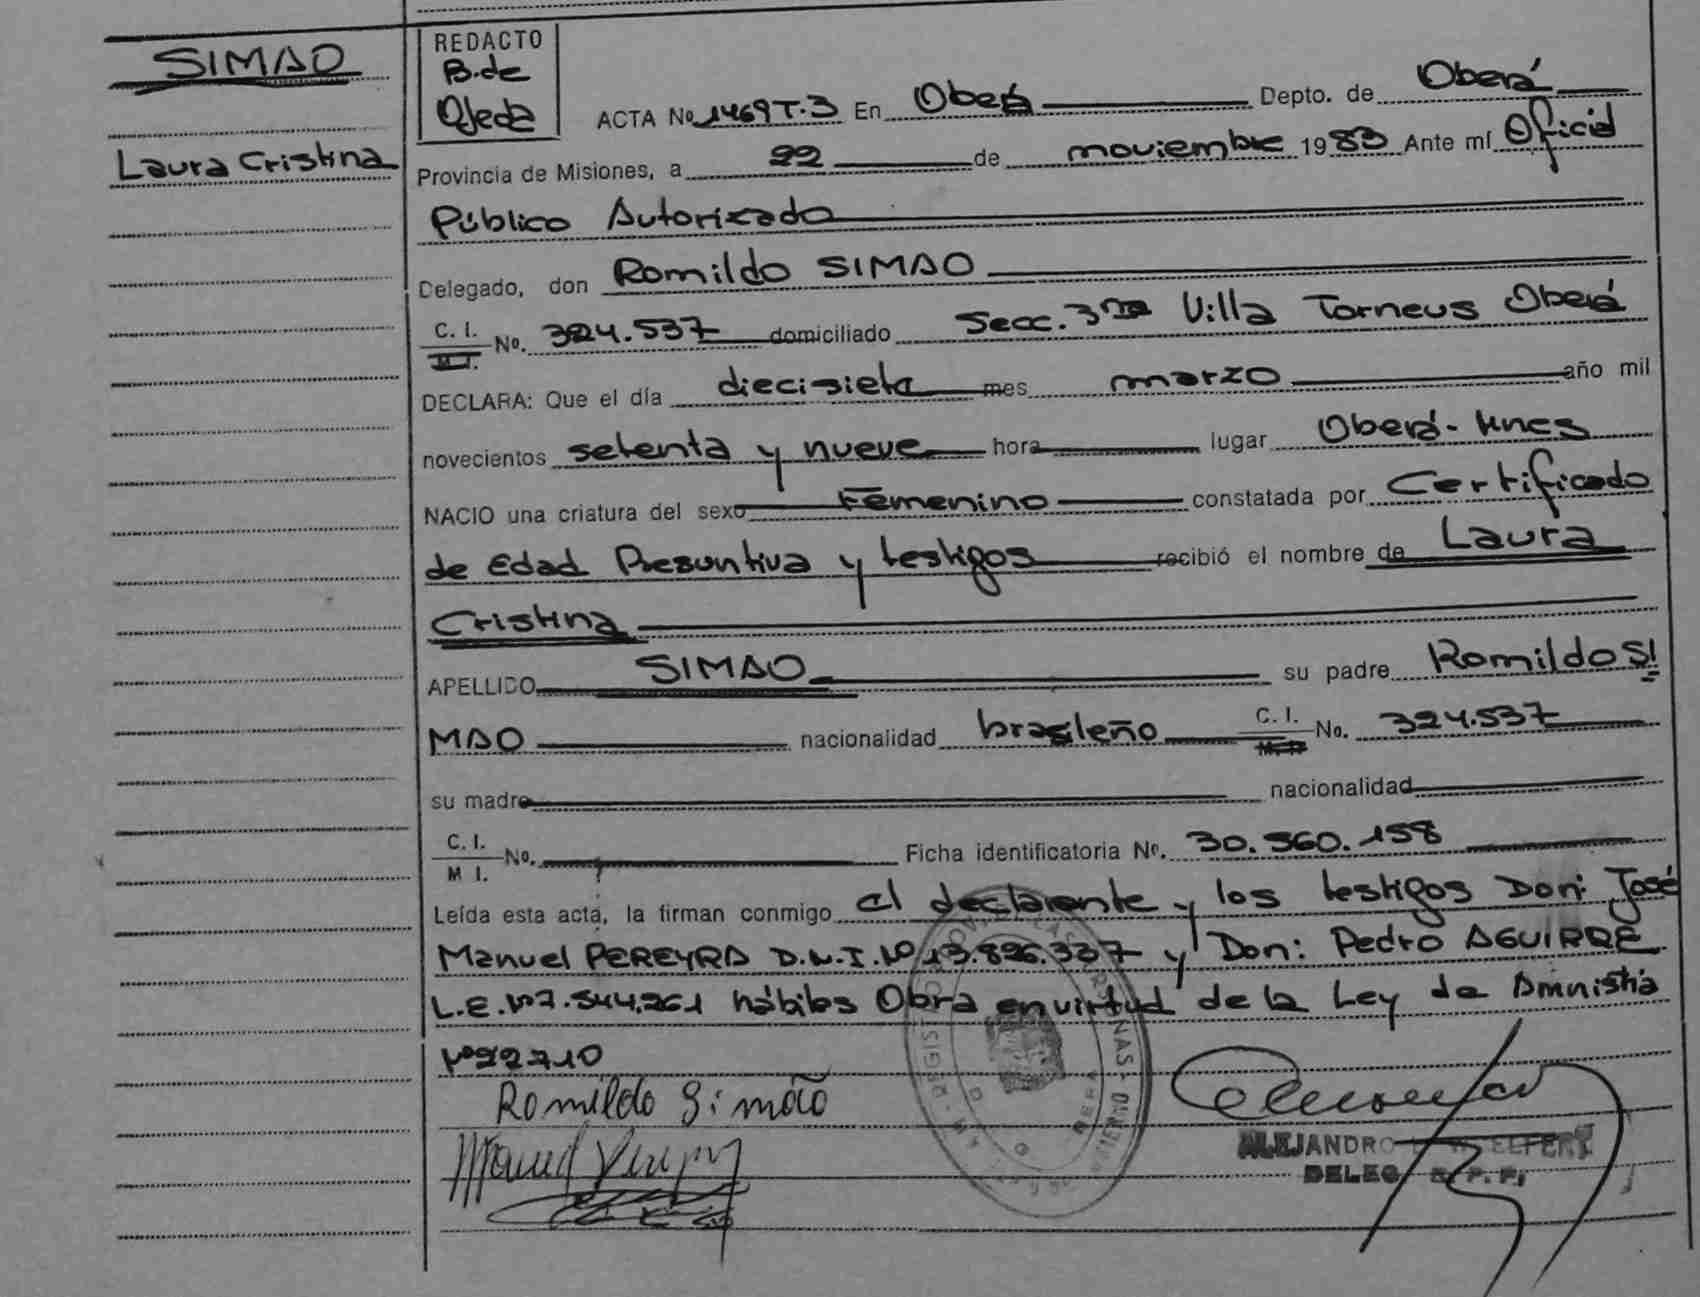 SIMAO
Laura Cristina
REDACTO
B. de
Ojeda
ACTA No 1469 T.3 En Oberá Depto. de Oberá
Provincia de Misiones, a 22 de noviembre 1983 Ante mí Oficial
Público Autorizado
Delegado, don Romildo SIMAO
C. I.
M I.
No. 324.537 domiciliado Secc. 3ra Villa Torneus Oberá
DECLARA: Que el día diecisiete mes marzo año mil
novecientos setenta y nueve hora lugar Oberá-
NACIO una criatura del sexo Femenino constatada por Certificado
de Edad Presuntiva y testigos recibió el nombre de Laura
Cristina
APELLIDO SIMAO su padre Romildo SI
MAO nacionalidad brasleño C. I. No. 324.537
su madre nacionalidad
C. I.
M I.
No. Ficha identificatoria No. 30.560.158
Leída esta acta, la firman conmigo el declarante y los testigos Don: José
Manuel PEREYRA D.N.I. Nº 13.896.337 y Don: Pedro AGUIRRE
L.E. Nº 7.544.261 hábiles Obra en virtud de la Ley de Amnistía
Nº 22710
Romildo Simão
ALEJANDRO
DELEG